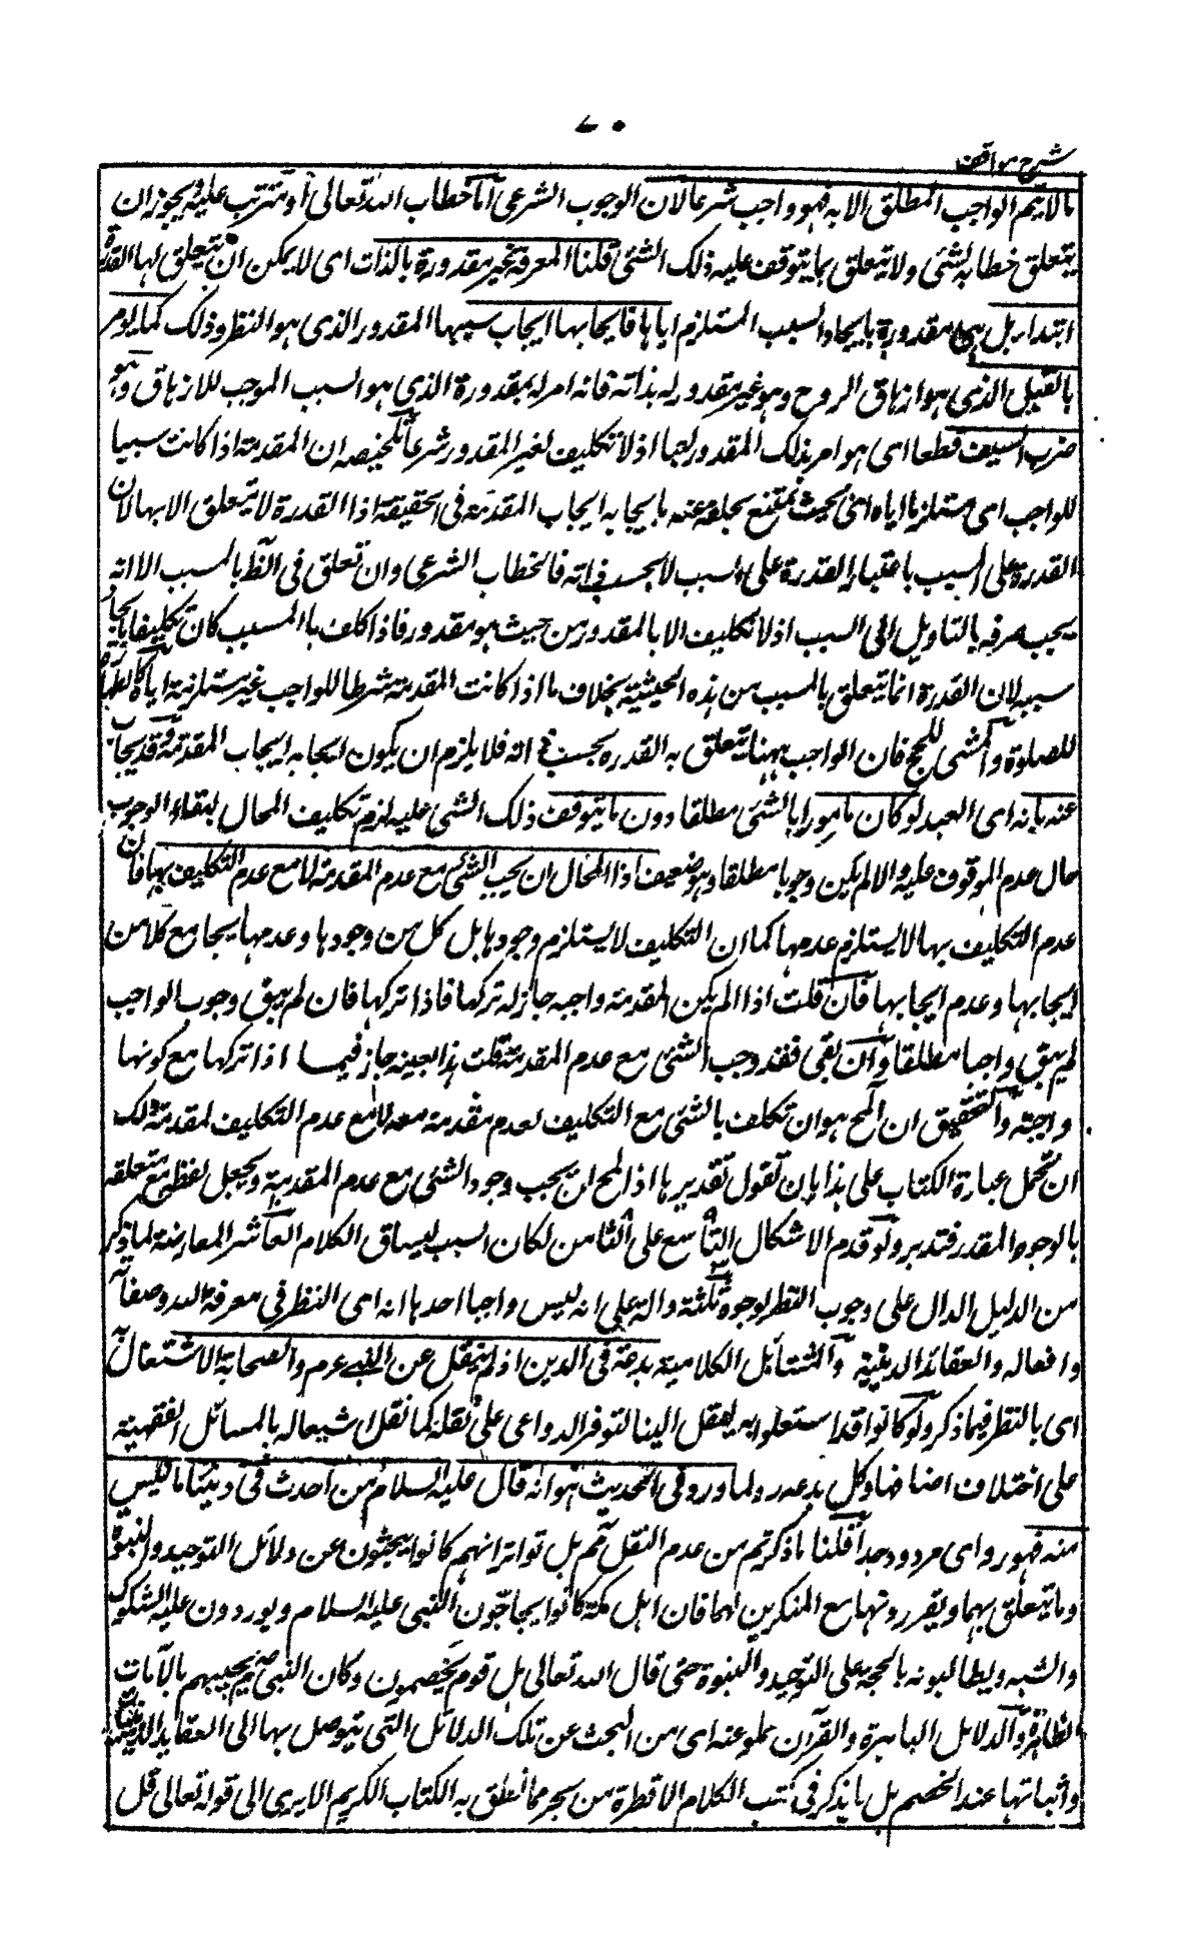 ٧٠
شرح مواقف
ما لا يتم الواجب المطلق الا به فهو واجب شرعا لان الوجوب الشرعى اما خطاب الله تعالى او مترتب عليه ويجوز ان
يتعلق خطابه بشئ ولا يتعلق بما يتوقف عليه ذلك الشئ قلنا المعرفة غير مقدورة بالذات اى لا يمكن ان يتعلق لها القدرة
ابتداء بل هى مقدورة بايجاد السبب المستلزم اياها فايجابها ايجاب سببها المقدور الذى هو النظر وذلك كما يومر
بالقتل الذى هو ازهاق الروح وهو غير مقدور له بذاته فانه امر له بمقدورة الذى هو السبب الموجب للازهاق وهو
ضرب السيف قطعا اى هو امر بذلك المقدور لجما اذ لا تكليف لغير المقدور شرعا تلخيصه ان المقدمة اذا كانت سببا
للواجب اى مستلزما اياه اى بحيث يمتنع تخلفه عنه بايجابه ايجاب المقدمة فى الحقيقة اذا القدرة لا تتعلق الا بها لان
القدرة على المسبب باعتبار القدرة على السبب لا بحسب ذاته فالخطاب الشرعى وان تعلق فى الظ بالمسبب الا انه
يجب صرفه بالتاويل الى السبب اذ لا تكليف الا بالمقدور من حيث هو مقدور فاذا كلف بالمسبب كان تكليفا بايجاد
سببه لان القدرة انما تتعلق بالمسبب من هذه الحيثية بخلاف ما اذا كانت المقدمة شرطا للواجب غير مستلزمة اياه كالطهارة
للصلوة والمشى للحج فان الواجب ههنا تتعلق به القدره بحسب ذاته فلا يلزم ان يكون ايجابه ايجاب المقدمة وقد يجاب
عنه بانه اى العبد لو كان مامورا بالشئ مطلقا دون ما يتوقف ذلك الشئ عليه لزم تكليف المحال لبقاء الوجوب
حال عدم الموقوف عليه والا لم يكن وجوبا مطلقا وهو ضعيف اذ المحال ان يجب الشئ مع عدم المقدمة لا مع عدم التكليف بها فان
عدم التكليف بها لا يستلزم عدمها كما ان التكليف لا يستلزم وجودها بل كل من وجودها وعدمها يجامع كلا من
ايجابها وعدم ايجابها فان قلت اذا لم يكن المقدمة واجبه جاز له تركها فاذا تركها فان لم يبق وجوب الواجب
لم يبق واجبا مطلقا وان بقى فقد وجب الشئ مع عدم المقدمة قلت هذا بعينه جاز فيما اذا تركها مع كونها
واجبة والتحقيق ان المح هو ان تكلف بالشئ مع التكليف لعدم مقدمة معه لا مع عدم التكليف لمقدمة ولك
ان تحمل عبارة الكتاب على هذا بان تقول تقديرها اذ المح ان يجب وجود الشئ مع عدم المقدمة ويجعل لفظ مع متعلقه
بالوجود المقدر فتدبر ولو قدم الاشكال التاسع على الثامن لكان انسب لمساق الكلام العاشر المعارضة لما ذكر
من الدليل الدال على وجوب النظر لوجوه ثلثة دالة على انه ليس واجبا احدها انه اى النظر فى معرفة الله وصفاته
وافعاله والعقائد الدينية والمسائل الكلامية بدعة فى الدين اذ لم ينقل عن النبى عرم والصحابة الاشتغال به
اى بالنظر فيما ذكر ولو كانوا قد اشتغلوا به لنقل الينا لتوفر الدواعى على نقله كما نقل اشتغاله بالمسائل الفقهية
على اختلاف اصنافها وكل بدعة رد لما ورد فى الحديث هو انه قال عليه السلام من احدث فى ديننا ما ليس
منه فهو رد اى مردود جدا قلنا ما ذكرتم من عدم النقل مم بل تواتر انهم كانوا يبحثون عن دلائل التوحيد والنبوة
وما يتعلق بهما ويقررونها مع المنكرين لهما فان اهل مكة كانوا يحاجون النبى عليه السلام ويوردون عليه الشكوك
والشبه ويطالبونه بالحجة على التوحيد والنبوة حتى قال الله تعالى بل قوم يخصمون وكان النبى صلعم يجيبهم بالآيات
الظاهرة والدلائل الباهرة والقرآن مملو عنه اى من البحث عن تلك الدلائل التى يتوصل بها الى العقايد الدينية
واثباتها عند الخصم بل ما يذكر فى كتب الكلام الا قطرة من بحر مما نطق به الكتاب الكريم الا يرى الى قوله تعالى قل